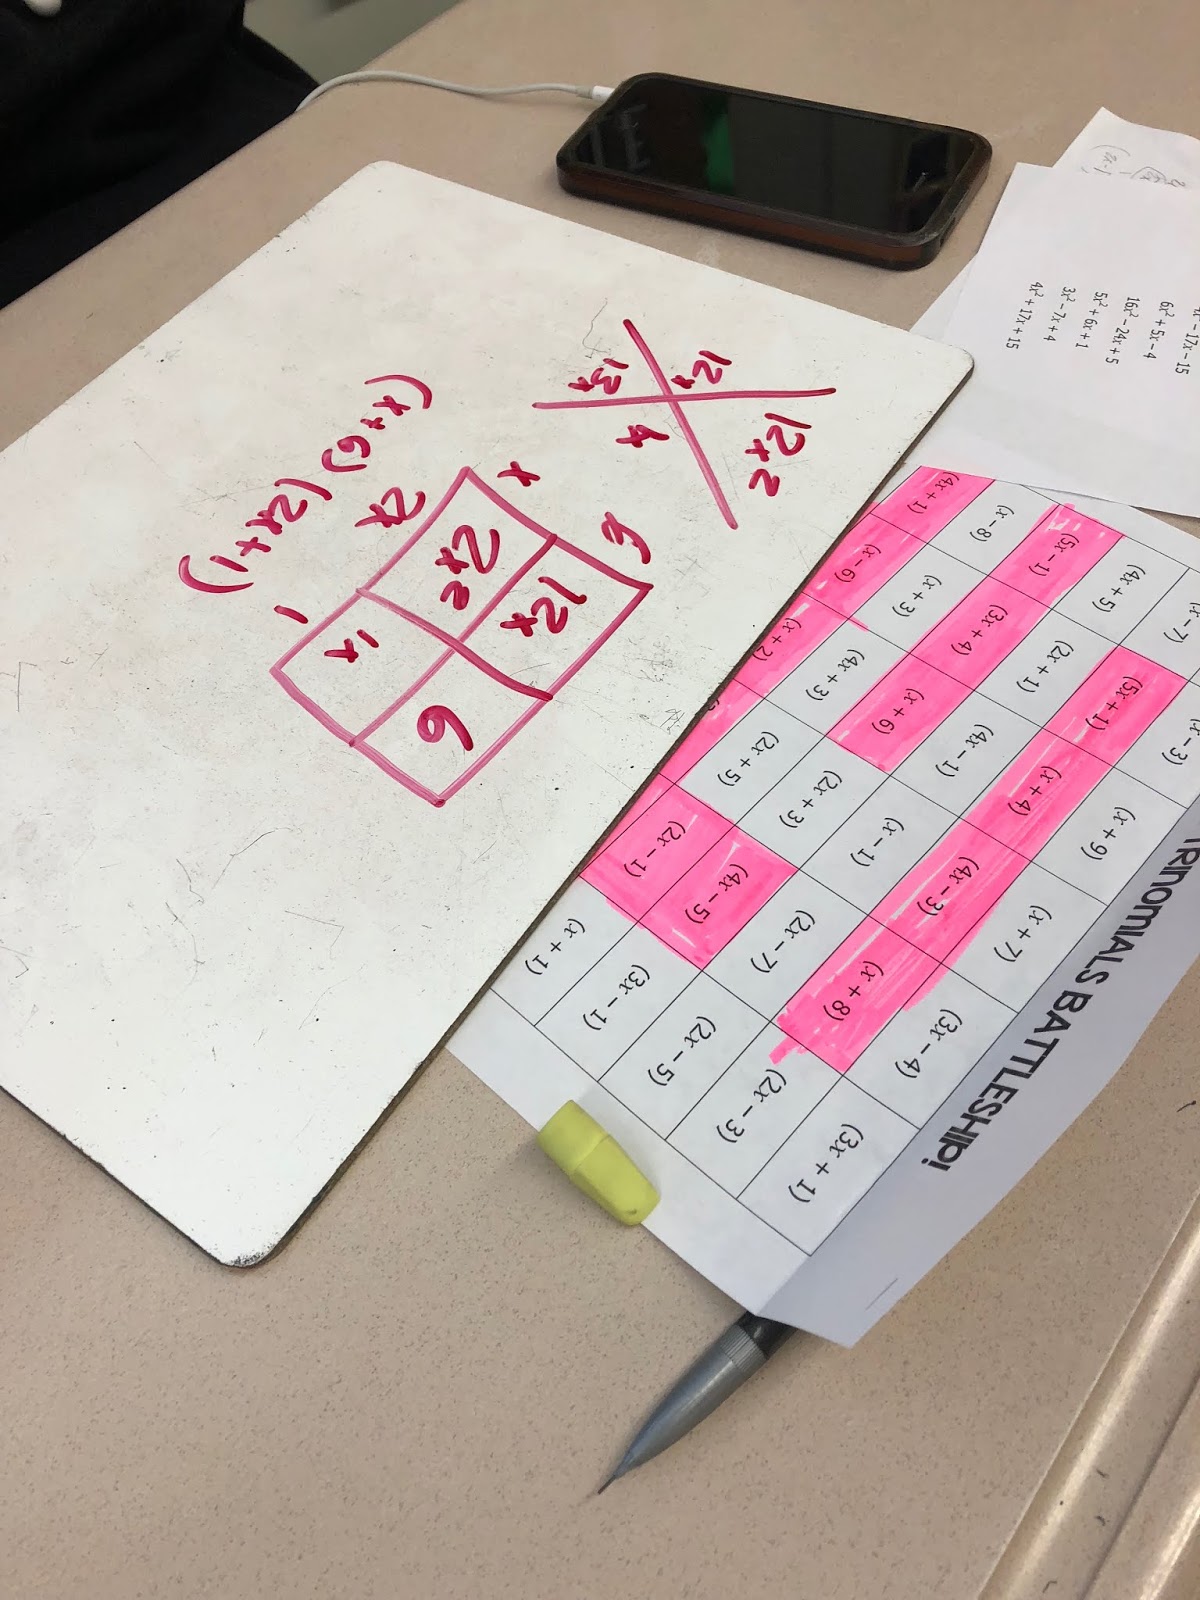 12x²
12x
13x
x 6
2x 2x² 12x
1 1x 6
(x+6) (2x+1)
− 17x − 15
6x² + 5x − 4
16x² − 24x + 5
5x² + 6x + 1
3x² − 7x + 4
4x² + 17x + 15
TRINOMIALS BATTLESHIP!
(x − 3) (x + 9) (x + 7) (3x − 4) (3x + 1)
(x − 7) (5x + 1) (x + 4) (4x − 3) (x + 8) (2x − 3)
(4x + 5) (2x + 1) (4x − 1) (x − 1) (2x − 7) (2x − 5)
(5x − 1) (3x + 4) (x + 6) (2x + 3) (4x − 5) (3x − 1)
(x − 8) (x + 3) (4x + 3) (2x + 5) (2x − 1) (x + 1)
(4x + 1) (x − 6) (x + 2)